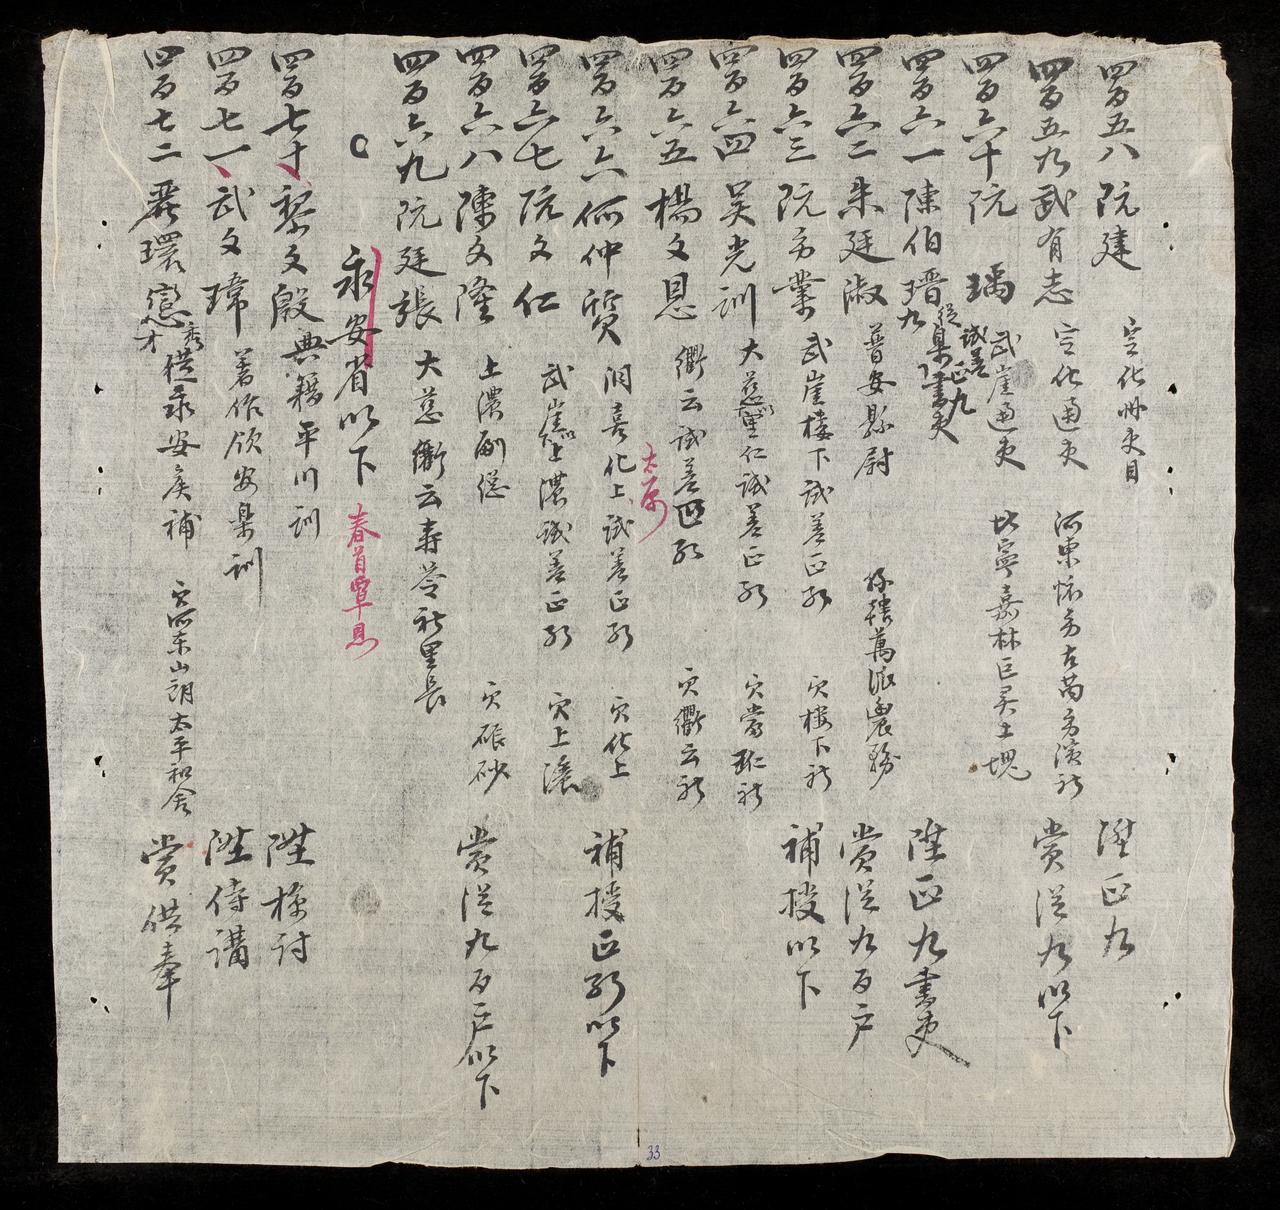 四百五八 阮建 定化州吏目 陞正九
四百五九 武有志 定化通吏 河東懷方古芮方演社 賞從九以下
四百六十 阮瑀 武崖通吏 北寧嘉林巨灵土塊
四百六一 陳伯瑨 試差正九 從九 臬書吏 陞正九書吏
四百六二 朱廷淑 普安縣尉 派農務 賞從九百户
四百六三 阮方業 武崖樓下試差正 穴樓下社 補授以下
四百六四 吴光訓 大慈里仁試差正 穴蒙 社
四百六五 楊文恩 衢云試差正 穴衢云社
太原
四百六六 何仲質 洞喜化上試差正 穴化上 補授正 以下
四百六七 阮文仁 武崖上濃試差正 穴上濃
四百六八 陳文隆 上濃副總 穴硍砂 賞從九百户以下
四百六九 阮廷張 大慈衢云寿 社里長
永安省以下 春首覃恩
四百七十 黎文殷 典籍平川訓 陞檢討
四百七一 武文瑋 著作領安 訓 陞侍講
四百七二 環 秀才 永安 補 穴 東山朗太平和舍 賞供奉
33